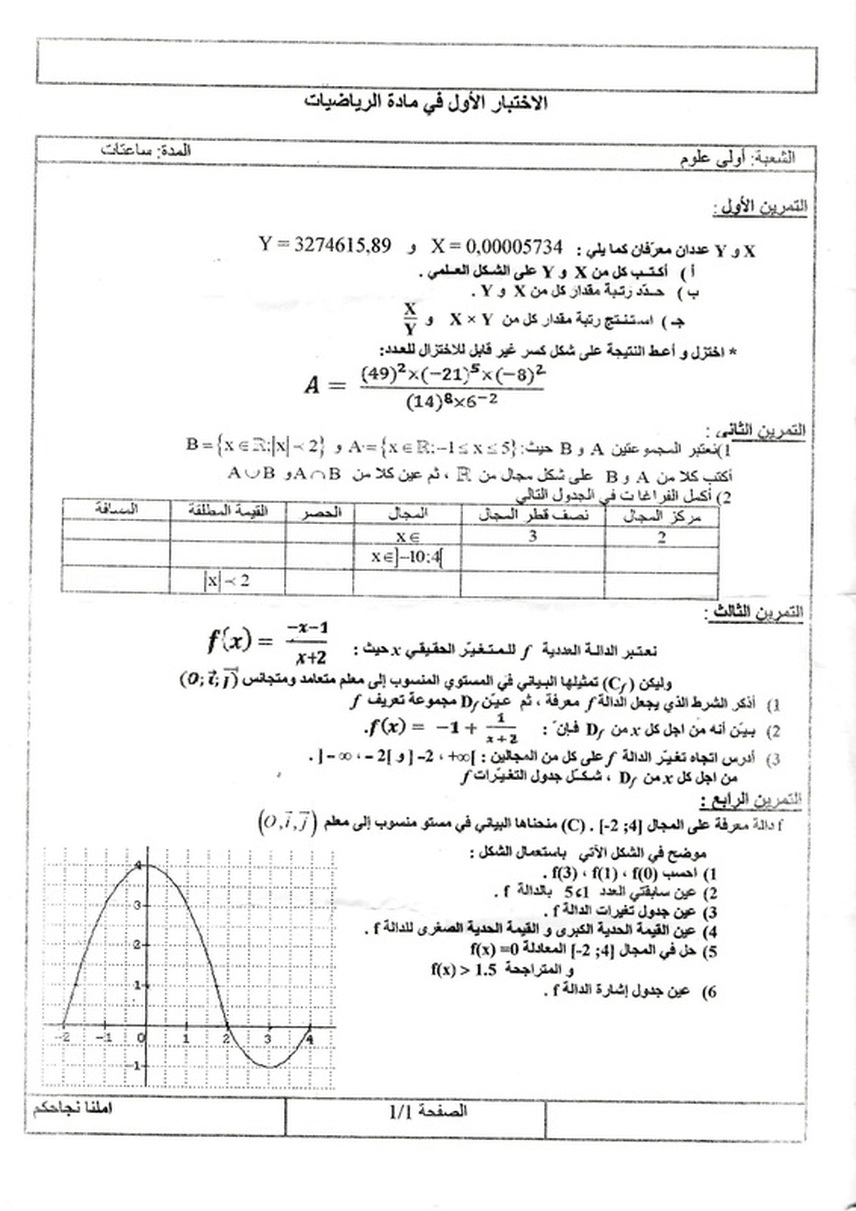 الاختبار الأول في مادة الرياضيات
الشعبة: أولى علوم المدة: ساعتات
التمرين الأول :
X و Y عددان معرّفان كما يلي : X = 0,00005734 و Y = 3274615,89
أ ) أكتب كل من X و Y على الشكل العلمي .
ب ) حدّد رتبة مقدار كل من X و Y .
جـ ) استنتج رتبة مقدار كل من X × Y و X/Y
* اختزل و أعط النتيجة على شكل كسر غير قابل للاختزال للعدد:
A = ((49)²×(−21)⁵×(−8)²)/((14)⁸×6⁻²)
التمرين الثاني :
1)نعتبر المجموعتين A و B حيث: A = {x ∈ ℝ; −1 ≤ x ≤ 5} و B = {x ∈ ℝ; |x| ≺ 2}
أكتب كلا من A و B على شكل مجال من ℝ ، ثم عين كلا من A∩B و A∪B
2) أكمل الفراغات في الجدول التالي
مركز المجال نصف قطر المجال المجال الحصر القيمة المطلقة المسافة
2 3 x ∈
x ∈ ]−10;4[
|x| ≺ 2
التمرين الثالث :
نعتبر الدالة العددية f للمتغيّر الحقيقي x حيث : f(x) = (−x−1)/(x+2)
وليكن (C_f) تمثيلها البياني في المستوي المنسوب إلى معلم متعامد ومتجانس (O; i⃗; j⃗)
1) أذكر الشرط الذي يجعل الدالة f معرفة ، ثم عيّن D_f مجموعة تعريف f
2) بيّن أنه من اجل كل x من D_f فإنّ : f(x) = −1 + 1/(x+2).
3) أدرس اتجاه تغيّر الدالة f على كل من المجالين : ]-2 ، +∞[ و ]-∞ ، -2[ .
من اجل كل x من D_f ، شكّل جدول التغيّرات f
التمرين الرابع :
f دالة معرفة على المجال [-2 ;4] . (C) منحناها البياني في مستو منسوب إلى معلم (O, i⃗, j⃗)
موضح في الشكل الآتي باستعمال الشكل :
1) احسب f(0) ، f(1) ، f(3) .
2) عين سابقتي العدد 1 و 5 بالدالة f .
3) عين جدول تغيرات الدالة f .
4) عين القيمة الحدية الكبرى و القيمة الحدية الصغرى للدالة f .
5) حل في المجال [-2 ;4] المعادلة f(x) =0
و المتراجحة f(x) > 1.5
6) عين جدول إشارة الدالة f .
4
3
2
1
-2 -1 0 1 2 3 4
-1
املنا نجاحكم الصفحة 1/1